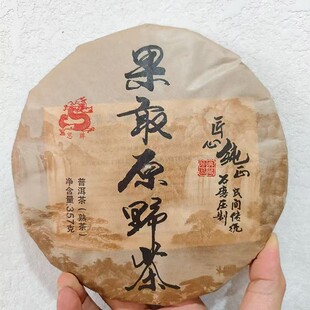 果敢原野茶
匠心
纯正
民间传统
石磨压制
普洱茶（熟茶）
净含量:357克